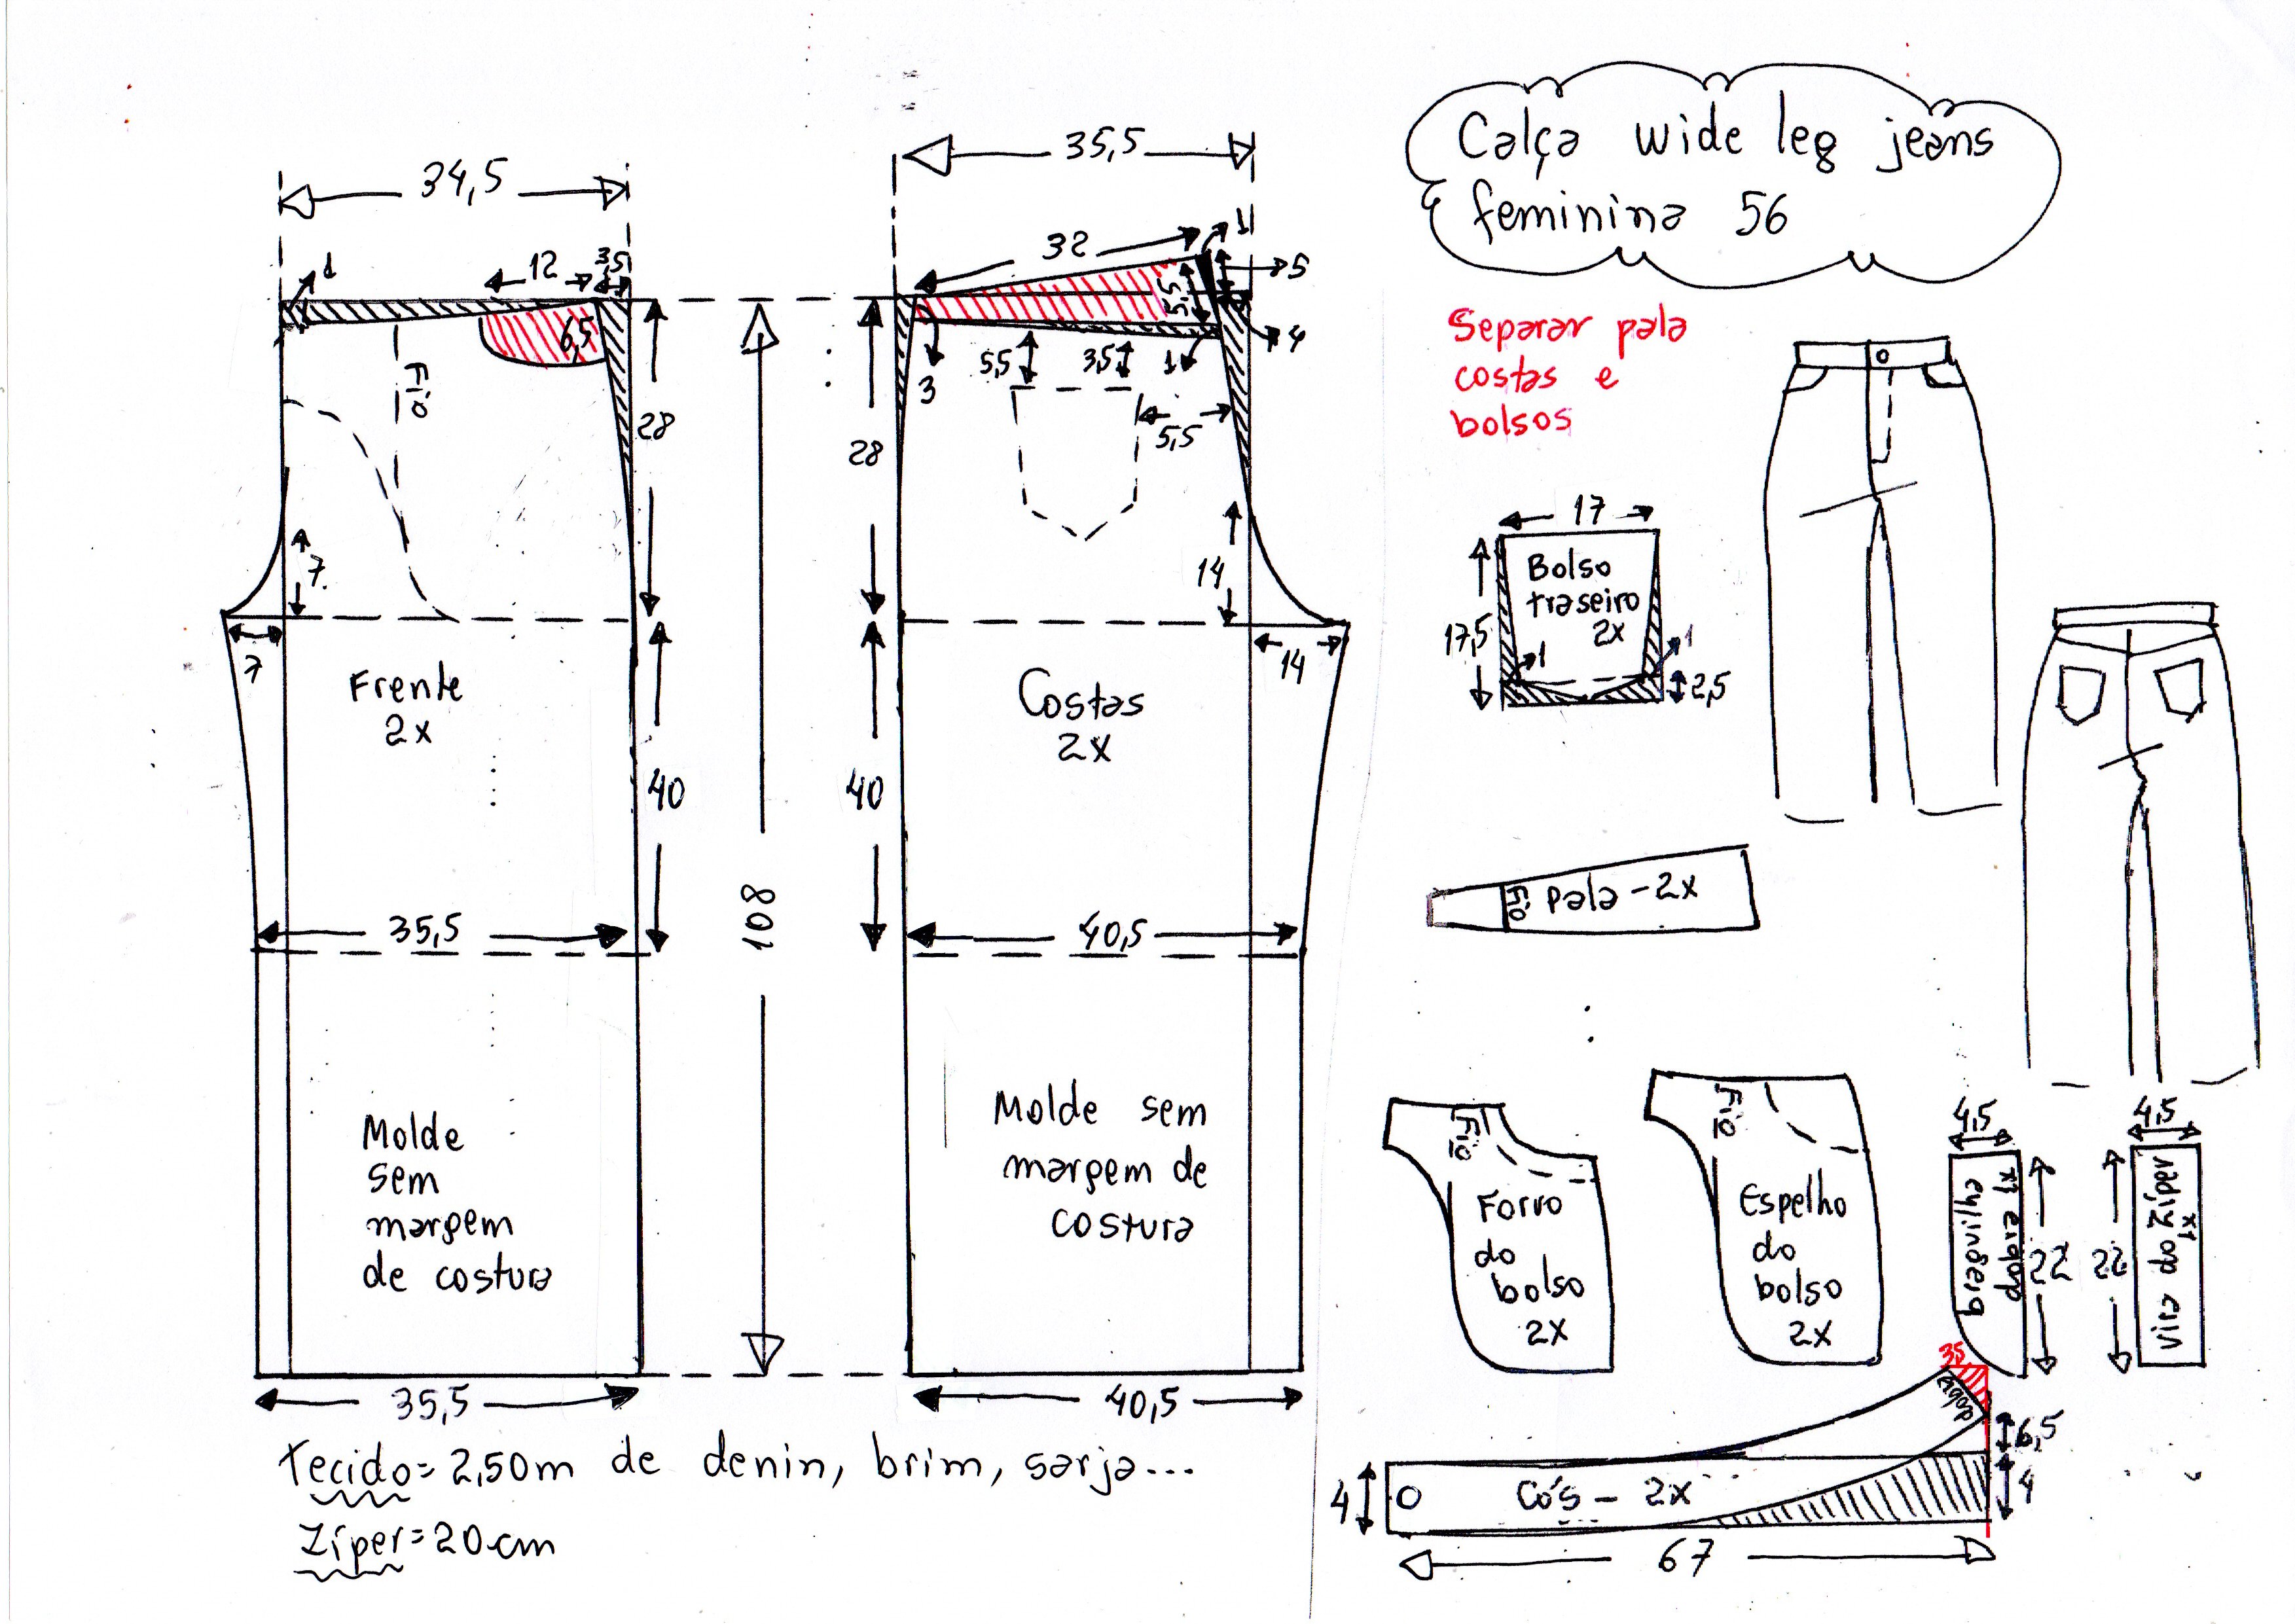 Calça wide leg jeans
feminina 56
Separar pala
costas e
bolsos
34,5
1
12
3,5
6,5
Fio
28
7
7
Frente
2x
40
35,5
Molde
sem
margem
de costura
35,5
108
35,5
32
1
5
5,5
4
3
5,5
3,5
1
5,5
28
14
14
Costas
2x
40
40,5
Molde sem
margem de
costura
40,5
17
Bolso
traseiro
2x
17,5
1
1
2,5
Fio
pala - 2x
Fio
Forro
do
bolso
2x
Fio
Espelho
do
bolso
2x
4,5
braguilha
dobra 1x
22
4,5
vira do zíper
1x
22
35
dobra
6,5
4
4
Cós - 2x
67
Tecido= 2,50m de denin, brim, sarja...
Zíper=20cm